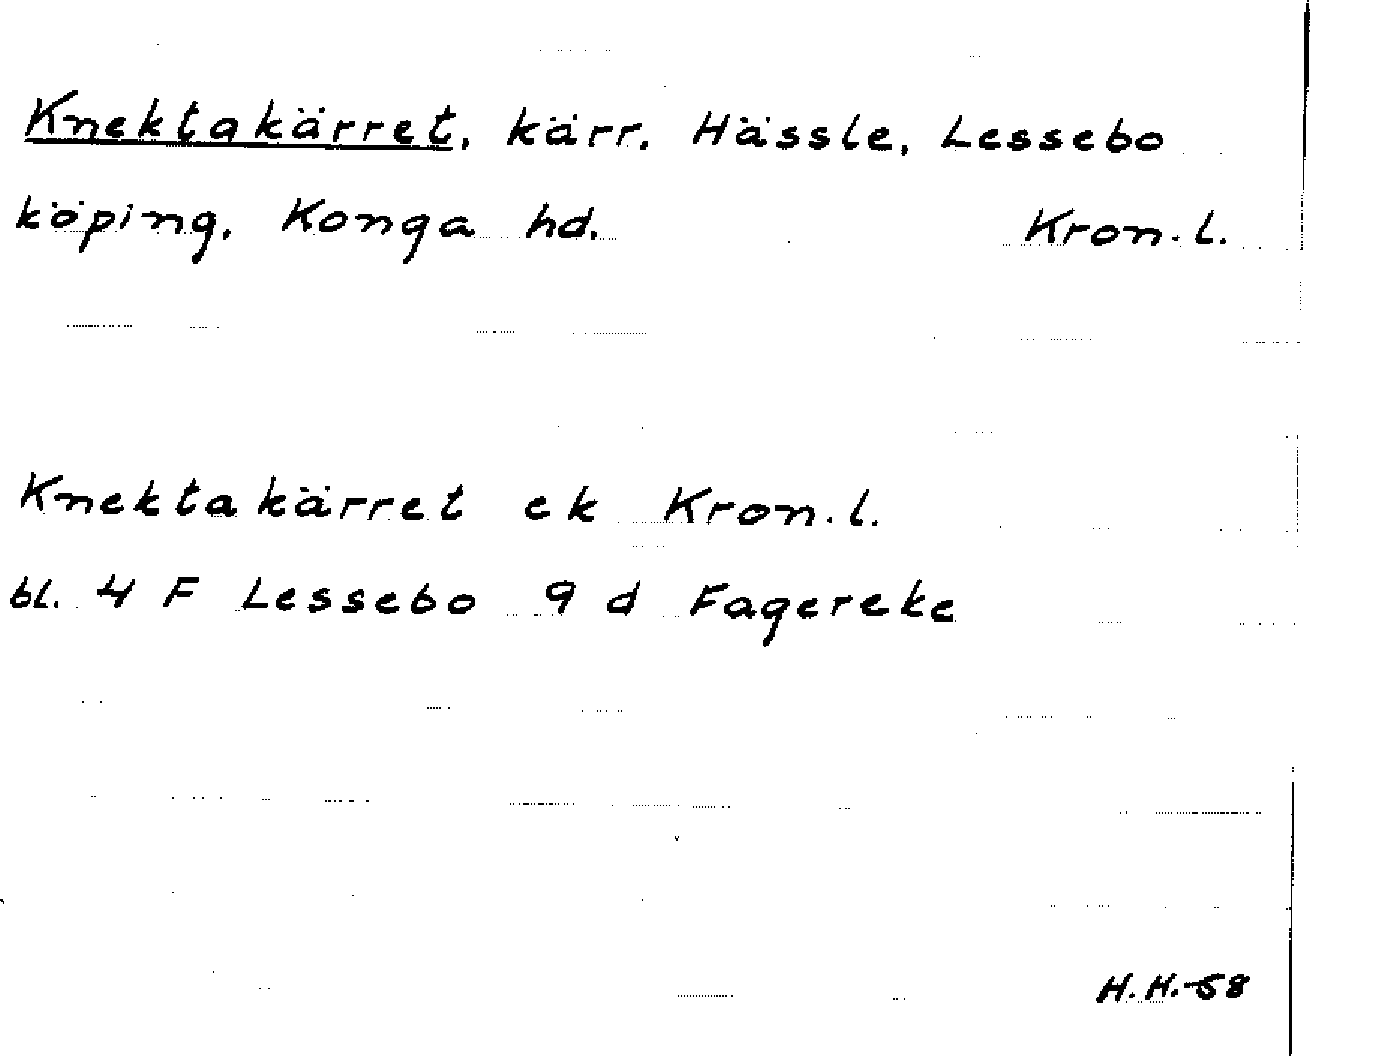 Knektakärret, kärr. Hässle, Lessebo
köping, Konga hd. Kron. l.
Knektakärret ek Kron. l.
bl. 4 F Lessebo 9 d Fagereke
H. H. -58